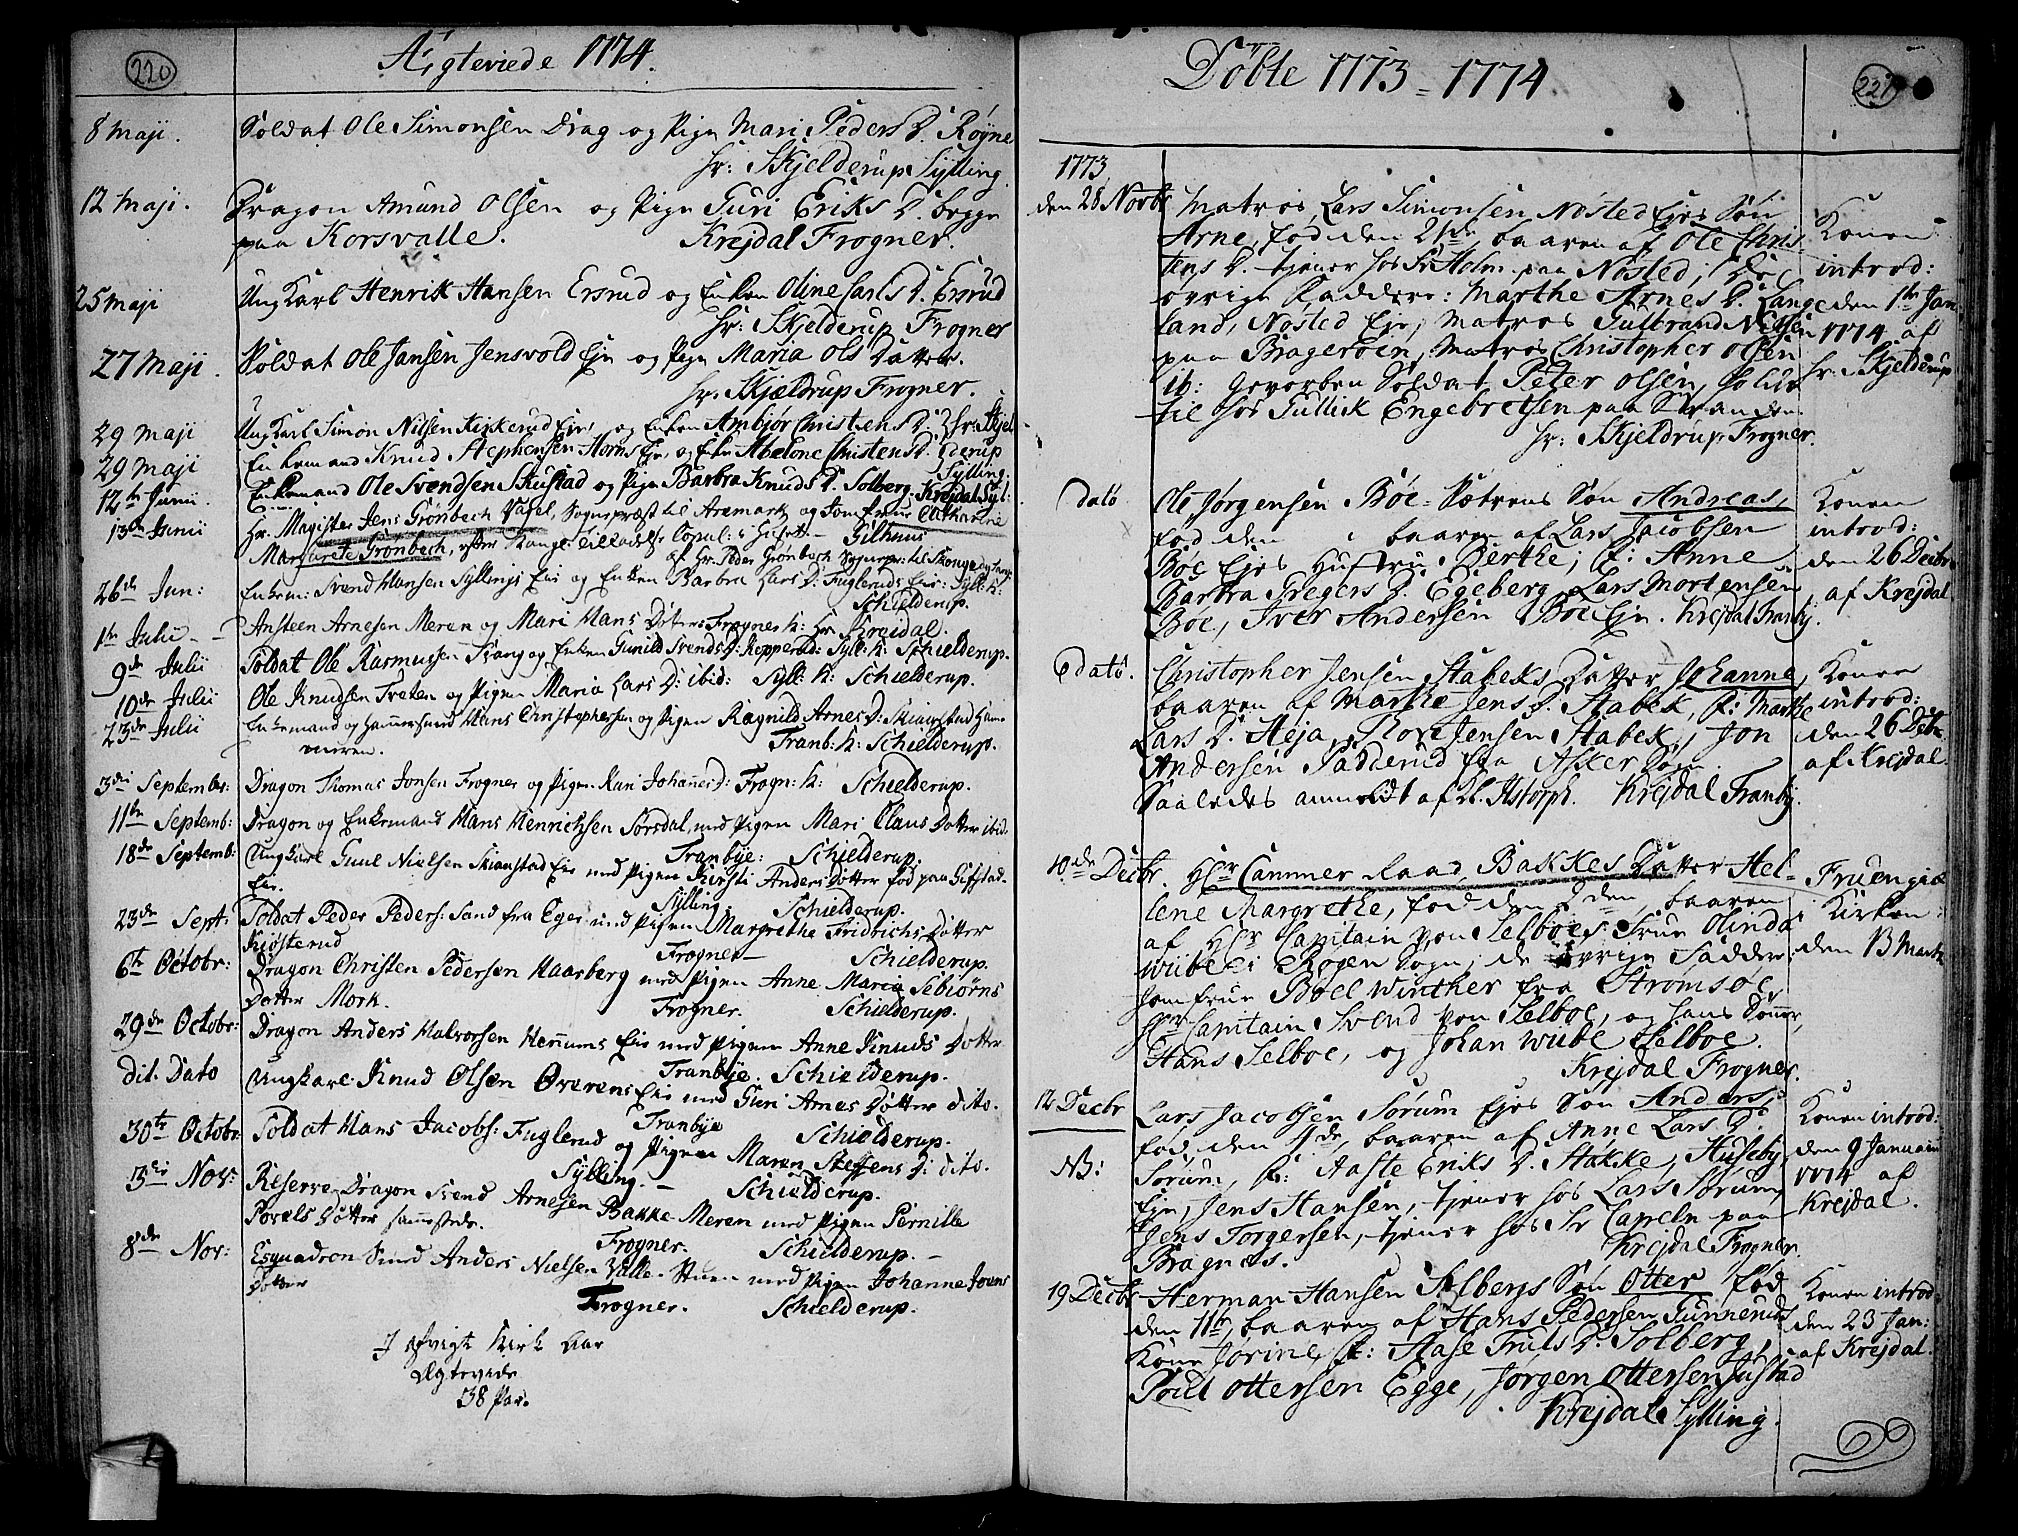 220
Ægteviede 1774.
8 Maji. Soldat Ole Simonsen Drag og Pige Mari Peders D. Røyne
Hr: Skjelderup Sylling
12 Maji. Dragon Amund Olsen og Pige Guri Eriks D. begge
paa Korsvalle. Krejdal Frogner.
25 Maji Ung Karl Henrik Hansen Ersrud og Enken Oline Carls D. Ersrud
Hr: Skjelderup Frogner
27 Maji. Soldat Ole Jansen Jensvold Eje og Pige Maria Ols Datter.
Hr: Skjeldrup Frogner.
29 Maji Ung Karl Simon Nilsen Kirkerud Eje, og Enken Ambjør Christens D.
29 Maji Enkemand Knud Stephensen Horns Eje, og Enke Abelone Christens D. Sylling:
12te Junii. Enkemand Ole Svendsen Skustad og Pige Barbra Knuds D. Solberg. Krejdal Syl:
13de Junii Hr. Magister Jens Grønbech Vasel, Sognepræst til Aremark og Jomfrue Catharine
Margarete Grønbech, efter Kongel. Tilladelse Copul: i Huset Gilhuus
af Hr. Peder Grønbech Sognepr: til Skouge
26de Jun: Enkem: Svend Hansen Syllings Eie og Enken Barbra Lars D: Fugleruds Eie: Syll: K:
Schielderup.
1te Julii Ansteen Arnesen Meren og Mari Hans Dotter Frogner K: Hr. Kreidal.
9de Julii Soldat Ole Rasmussen og Enken Gunild Svends D: Kopperud: Syll: K: Schielderup.
10de Julii Ole Knudsen Treten og Pigen Maria Lars D: ibid: Syll: K: Schielderup.
23de Julii Enkemand og Hammersmed Hans Christophersen og Pigen Ragnild Arnes D: Skiarstad
Tranb: K: Schielderup.
3die September: Dragon Thomas Jonsen Frogner og Pigen Kari Johannes D: Frogn: K: Schielderup.
11te Septemb: Dragon og Enkemand Hans Henrichsen Sørsdal, med Pigen Mari Claus Dotter ibid.
Tranbye: Schielderup.
18de Septemb: Ungkarl Guul Nielsen Skiarstad Eie med Pigen Kirsti Anders Dotter fød paa Gifstad
Eie. Sylling. Schielderup.
23de Sept: Soldat Peder Peders: Sand fra Eger med Pigen Margrethe Fridrichs Dotter
Kiøsterud Frogner Schielderup.
6te Octobr: Dragon Christen Pedersen Haarberg med Pigen Anne Maria Sebiørns
Dotter Mork. Frogner. Schielderup.
29de Octobr: Dragon Anders Halvorsen Hennums Eie med Pigen Anne Knuds Dotter.
Tranbye. Schielderup.
dit. Dato Ungkarl Knud Olsen Overens Eie med Guri Arnes Dotter dito.
Tranbye Schielderup.
30te Octobr: Soldat Hans Jacobs: Fuglerud og Pigen Maren Steffens D: dito.
Sylling. Schielderup.
3die Nov: Reserve Dragon Svend Arnesen Bakke Meren med Pigen Pernille
Povels Dotter sammestede. Frogner. Schielderup.
8de Nov: Esquadron Smed Anders Nielsen Valle Stuen med Pigen Johanne Jouns
Dotter Frogner. Schielderup.
I afvigt Kirke Aar
Ægteviede
38 Par.
221
Döbte 1773 = 1774
1773
den 28 Novbr Matros Lars Simonsen Nøsted Ejes Søn
Arne, fød den 21de, baaren af Ole Chris-
tens D. tjener hos Sr Holm paa Nøsted; De
øvrige Faddere: Marthe Arnes D. Lange
land, Nøsted Eje, Matros Gulbrand Nilsen
paa Bragerøen, Matros Christopher Olsen
ib: Gevorben Soldat Peter Olsen,
til hos Gullick Engebretsen paa Stranden
Hr: Skjeldrup Frogner.
Konen
introd:
den 1te Jan
1774 af
Hr: Skjelderup
Dato Ole Jørgensen Bøe Sætrens Søn Andreas,
fød den baaren af Lars Jacobsen
Bøe Ejes Hustru Berthe; f: Anne
Barbra Gregers D. Egeberg, Lars Mortensen
Bøe, Iver Andersen Bøe Eje. Krejdal Tranby.
Konen
introd:
den 26 Decbr
af Krejdal
Dato. Christopher Jensen Stabeks Datter Johanne,
baaren af Marthe Jens D. Stabek, f: Marthe
Lars D. Heja, Tore Jensen Stabek, Jon
Andersen Padderud fra Asker Sogn.
Saaledes anmeldt af Kl. Astorph. Krejdal Tranby.
Konen
introd:
den 26 Decbr
af Krejdal.
10de Decbr. Hr Cammer Raad Bakkes Datter Hel-
lene Margrethe, fød den 2den, baaren
af Hr Capitain von Selboes Frue Olinda
Wiibe i Røgen Sogn; de øvrige Fadder:
Jomfrue Boel Winther fra Strømsøe,
Hr Capitain Svend von Selboe, og hans Sønner,
Hans Selboe, og Johan Wiibe Selboe.
Krejdal Frogner.
Fruen gik
i Kirken
den 13 Martii
12 Decbr Lars Jacobsen Sørum Ejes Søn Anders,
NB: fød den 4de, baaren af Anne Lars D.
Sørum, f: Aaste Eriks D. Stakke, Huseby
Eje, Jens Hansen, tjener hos Lars Sørum,
Jens Torgersen, tjener hos Sr Capeln paa
Bragnæs. Krejdal Frogner.
Konen introd:
den 9 Januarii
1774 af
Krejdal.
19 Decbr Herman Hansen Solbergs Søn Otter fød
den 11te, baaren af Hans Pedersen Gunneruds
Kone Jorine, f: Aase Truls D. Solberg,
Poul Ottersen Egge, Jørgen Ottersen Justad
Krejdal Sylling.
Konen introd.
den 23 Jan:
af Krejdal.